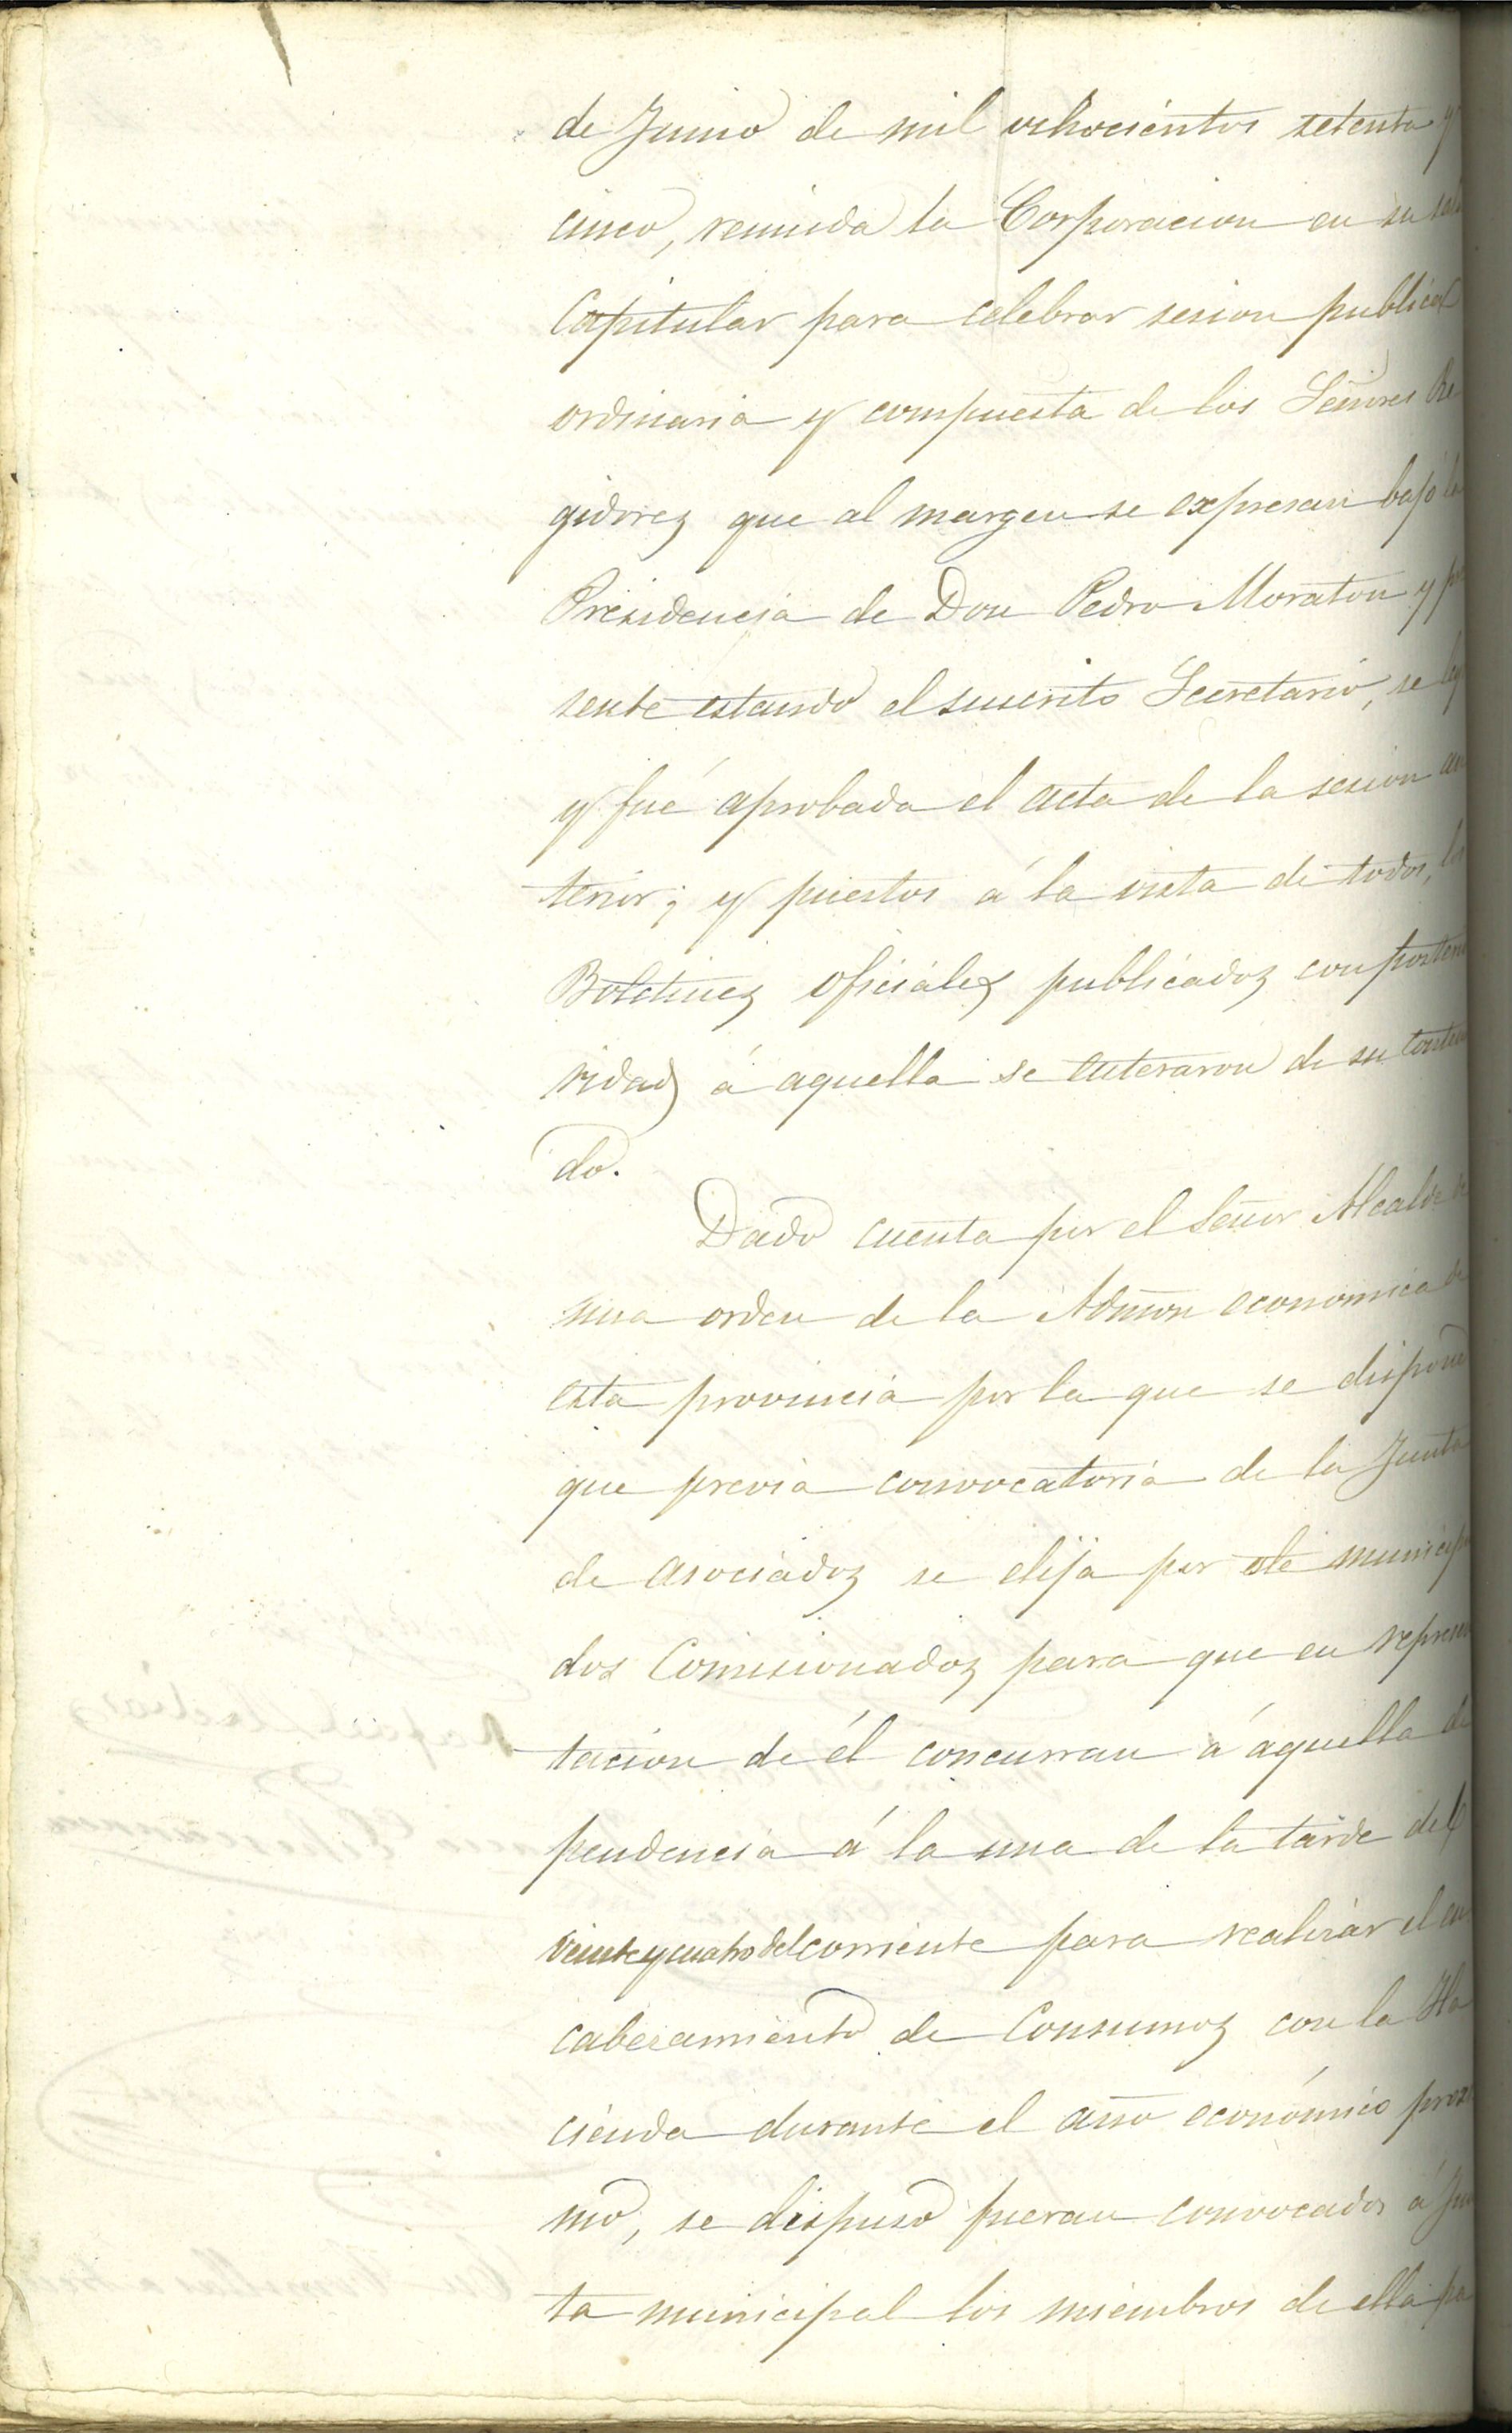 de Junio de mil ochocientos setenta y
cinco, reunida la Corporacion en su sala
Capitular para celebrar sesion publica
ordinaria y compuesta de los Señores Re
gidores que al margen se expresan bajo la
Presidencia de Don Pedro Moraton y pre
sente estando el suscrito Secretario, se leyó
y fué aprobada el acta de la sesion an
terior; y puestos á la vista de todos, los
Boletines oficiales publicados con posterio
ridad á aquella se enteraron de su conteni
do.
Dado cuenta por el Señor Alcalde de
una orden de la Admon economica de
esta provincia por la que se dispone
que previa convocatoria de la Junta
de asociados se elija por este municipio
dos Comisionados para que en represen
tacion de él concurran á aquella de
pendencia á la una de la tarde del
veinte y cuatro del corriente para realizar el en
cabezamiento de Consumos con la Ha
cienda durante el año económico proxi
mo, se dispuso fueran convocados á Jun
ta municipal los miembros de ella pa